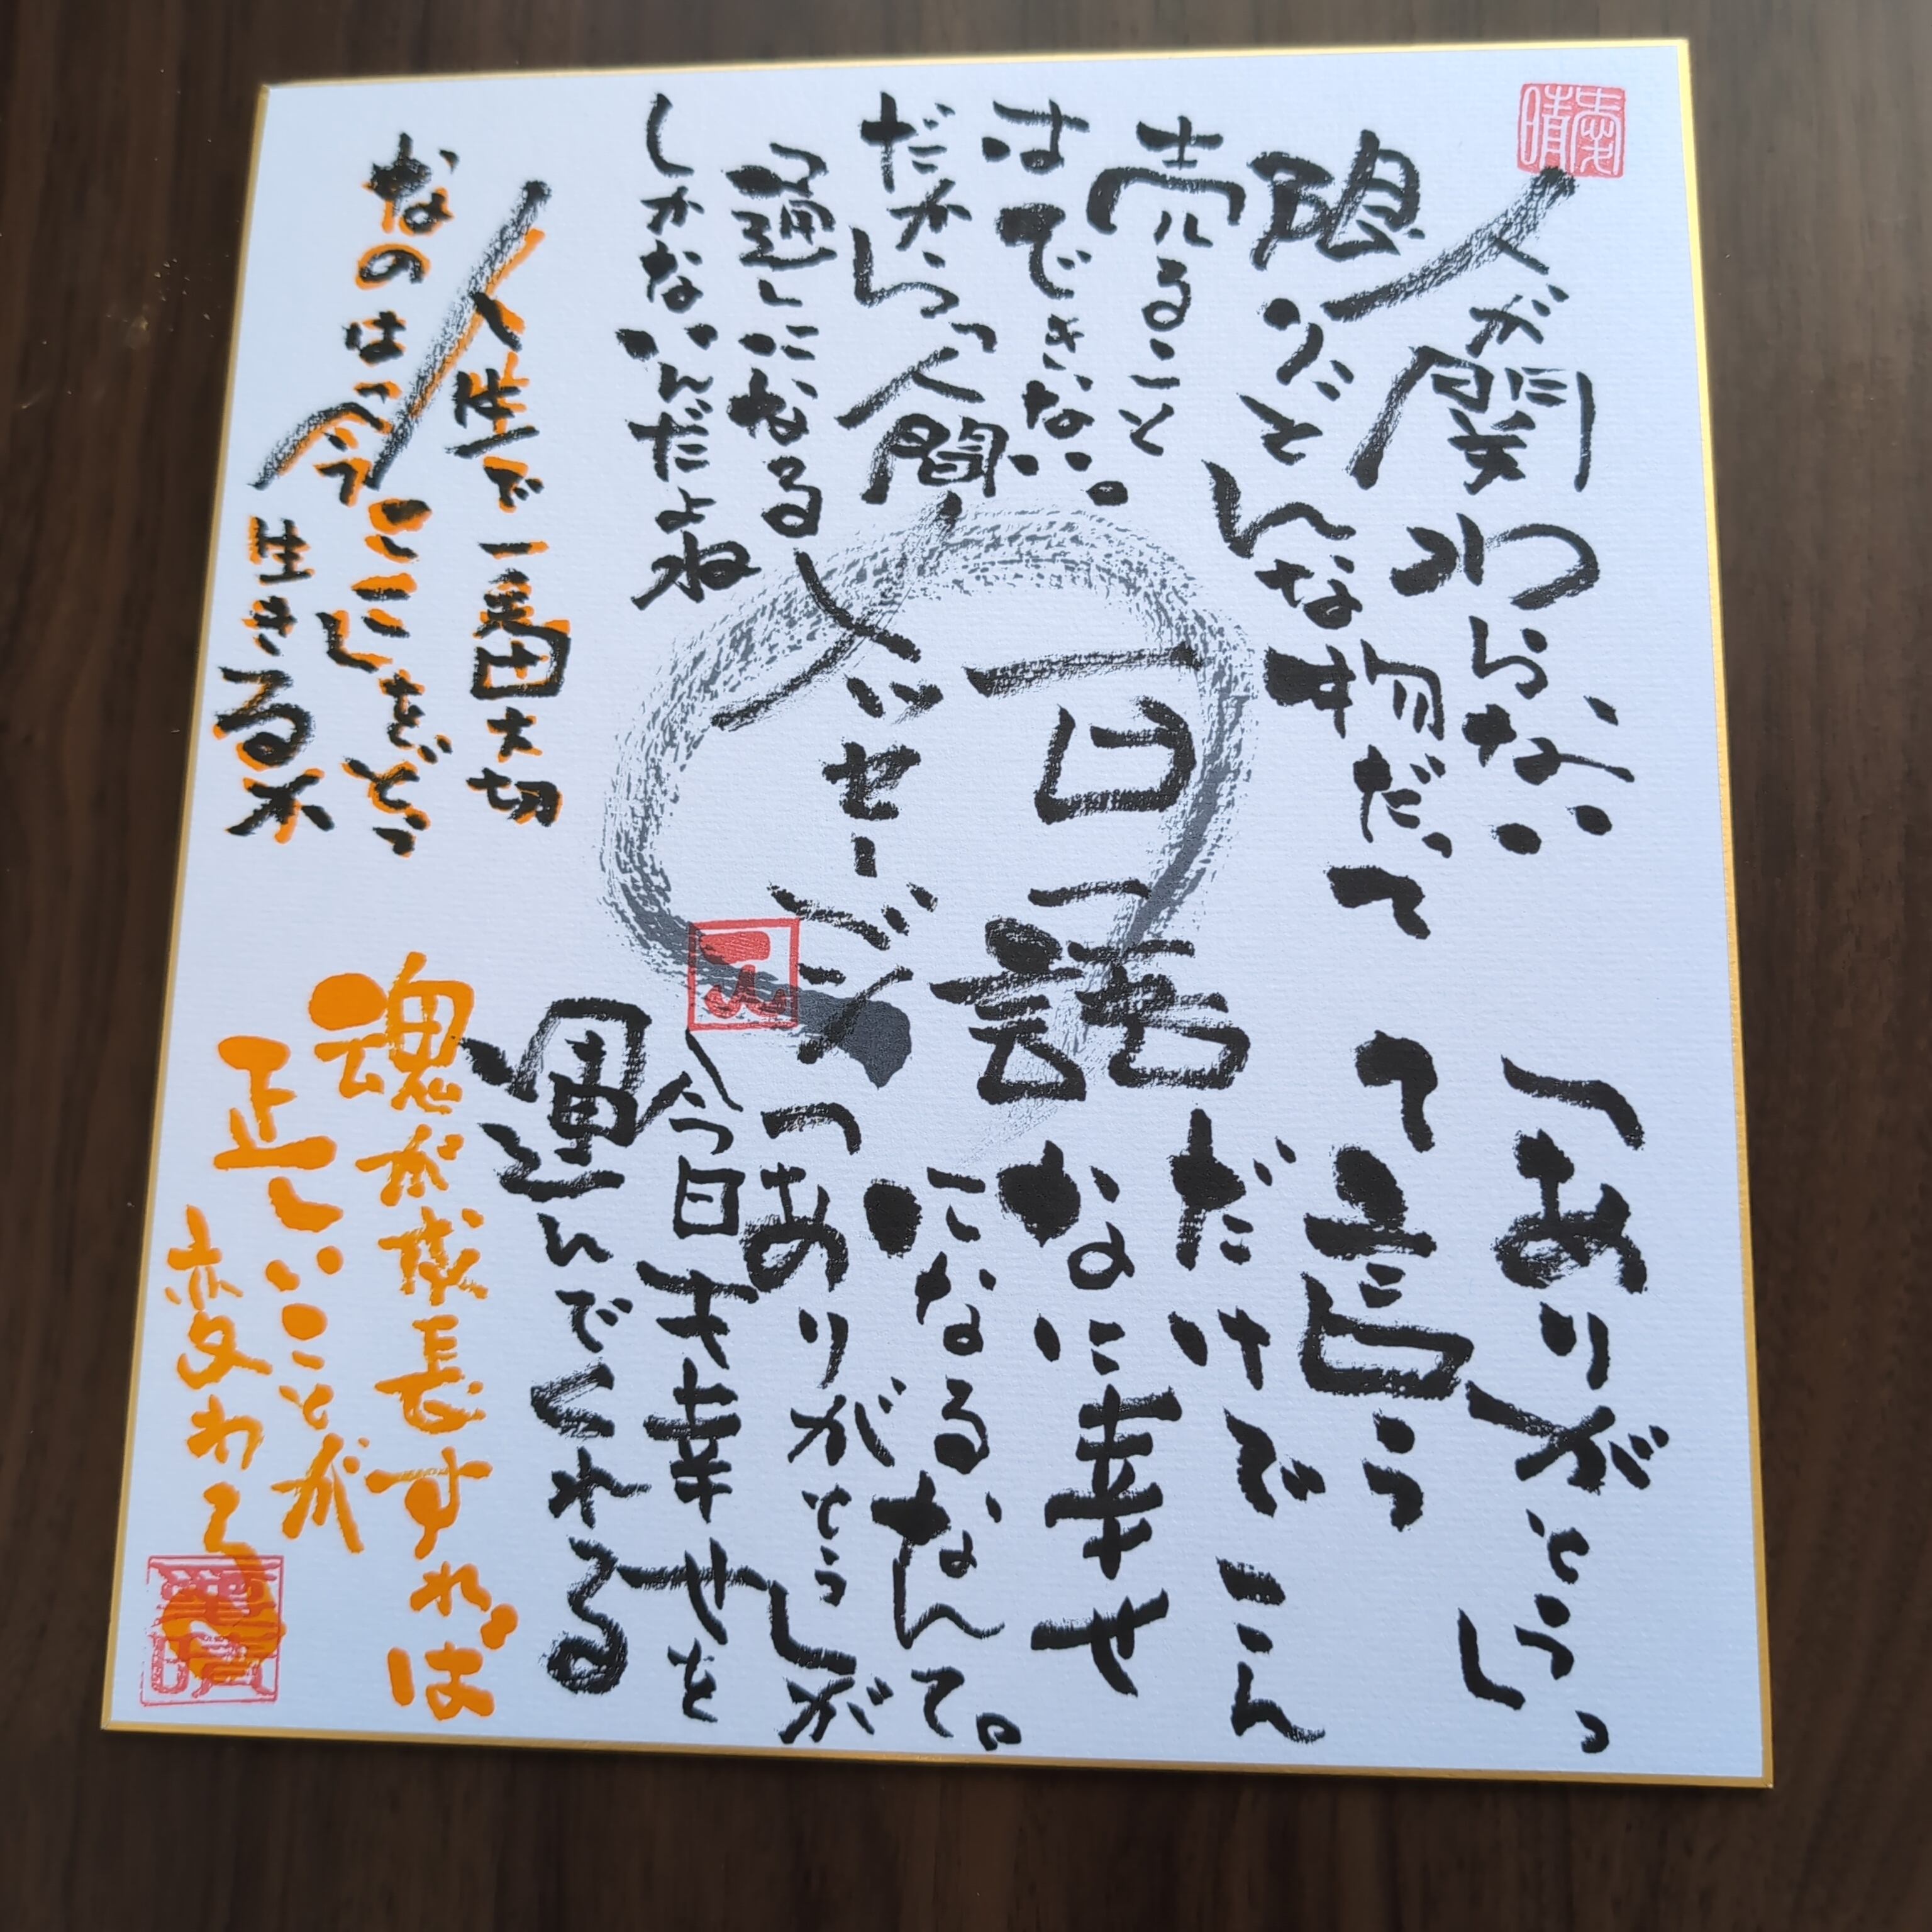 人が関わらない
限りどんな物だって
売ること
はできない。
だから「人間
通」になる
しかないんだよね
一日一語
メッセージ
「ありがとう」っ
て言う
だけでこん
なに幸せ
になるなんて。
「ありがとう」が
今日も幸せを
運んでくれる
人生で一番大切
なのは「今ここ」をどう
生きるか
魂が成長すれば
正しいことが
変わる